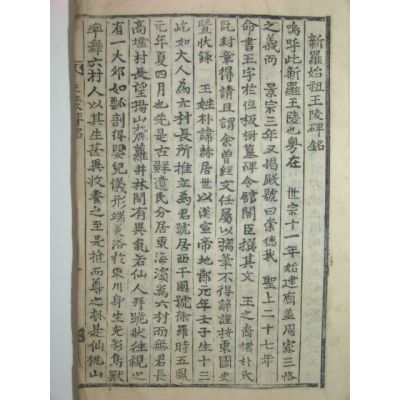 新羅始祖王陵碑銘
嗚呼此新羅王陵也粤在 世宗十一年始建廟盖周家三恪
之義而 景宗三年又揭殿號曰崇德我 聖上二十七年
命書王字於位板樹墓碑令館閣臣撰其文 王之裔諸朴氏
旣封章得請且謂余曾經文任屬以撰筆不得辭謹按東國史
曁狀錄 王姓朴諱赫居世以漢宣帝地節元年壬子生十三
屹如大人爲六村長所推立爲君號居西干國號徐羅時五鳳
元年夏四月也先是古朝鮮遺民分居東海濱爲六村而無君長
高墟村長望揚山麓蘿井林間有異氣若仙人拜跪狀往視之
有一大卵如瓢剖得嬰兒儀形端美浴於東川身生光彩鳥獸
率舞六村人以其生甚異收養之至是推而尊之盖是仙桃山
王陵碑銘